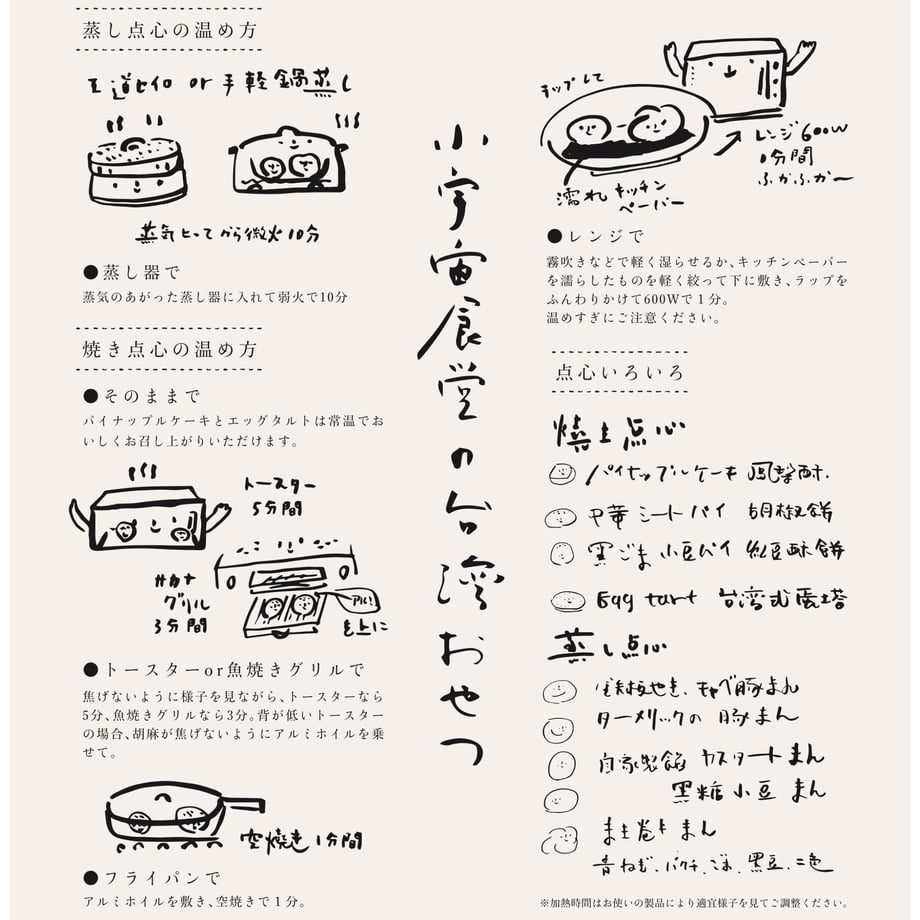 蒸し点心の温め方
王道セイロ or 手軽鍋蒸し
蒸気たってから微火10分
●蒸し器で
蒸気のあがった蒸し器に入れて弱火で10分
焼き点心の温め方
●そのままで
パイナップルケーキとエッグタルトは常温でお
いしくお召し上がりいただけます。
トースター
5分間
サカナ
グリル
3分間
アルミ
を上に
●トースターor魚焼きグリルで
焦げないように様子を見ながら、トースターなら
5分、魚焼きグリルなら3分。背が低いトースター
の場合、胡麻が焦げないようにアルミホイルを乗
せて。
空焼き1分間
●フライパンで
アルミホイルを敷き、空焼きで1分。
小宇宙食堂の台湾おやつ
ラップして
レンジ600W
1分間
ふかふか〜
濡れキッチン
ペーパー
●レンジで
霧吹きなどで軽く湿らせるか、キッチンペーパー
を濡らしたものを軽く絞って下に敷き、ラップを
ふんわりかけて600Wで1分。
温めすぎにご注意ください。
点心いろいろ
焼き点心
パイナップルケーキ 鳳梨酥
中華ミートパイ 胡椒餅
黒ごま小豆パイ 紅豆酥餅
Egg tart 台湾式蛋塔
蒸し点心
鉄板やき キャベ豚まん
ターメリックの 豚まん
自家製餡 カスタードまん
黒糖小豆 まん
まき巻き まん
青ねぎ、パクチ、ごま、黒豆、二色
※加熱時間はお使いの製品により適宜様子を見てご調整ください。